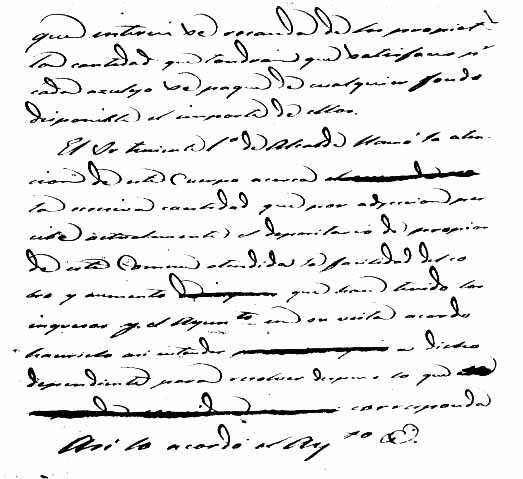 que interin se recauda de los propiet.s
la cantidad que tendran que satisfacer pr
cada azulejo se pague de cualquier fondo
disponible el importe de ellos.
El Sr teniente 1º de Alcalde llamó la aten-
cion de este Cuerpo acerca
la cantidad que por adjecion per
cibe actualmente el depositario de propios
de este Comun atendida la facilidad del co
bro y aumento que han tenido los
ingresos y el Ayunto en su vista acordó
hacerlo asi entender a dicho
dependiente para resolver despues lo que
corresponda
Asi lo acordó el Ayto &.